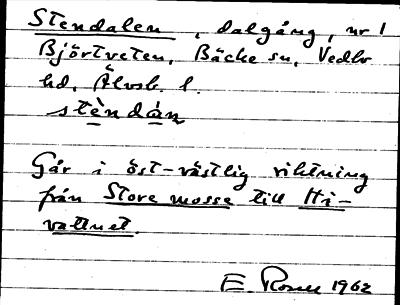 Stendalen, dalgång, nr 1
Björtveten, Bäcke sn, Vedbo
hd, Älvsb. l.
stèndán
Går i öst-västlig riktning
från Store mosse till Hi-
vattnet.
E. Rosell 1962